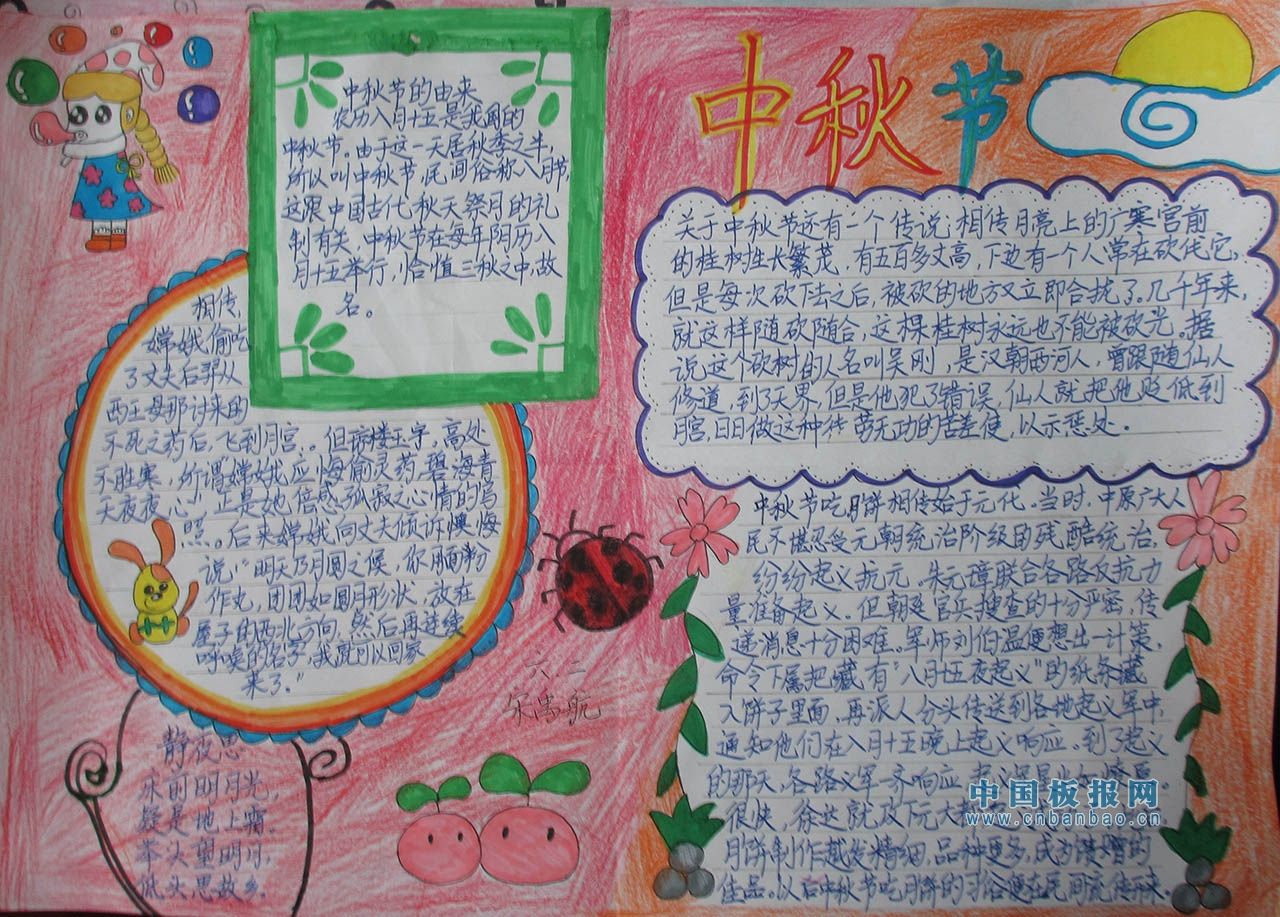 中秋节
中秋节的由来
农历八月十五是我国的
中秋节。由于这一天居秋季之半,
所以叫中秋节,民间俗称八月节,
这跟中国古代秋天祭月的礼
制有关,中秋节在每年阴历八
月十五举行,恰值三秋之中,故
名。
相传,
嫦娥偷吃
了丈夫后羿从
西王母那讨来的
不死之药后,飞到月宫。但琼楼玉宇,高处
不胜寒,所谓嫦娥应悔偷灵药,碧海青
天夜夜心,正是她倍感孤寂之心情的写
照。后来嫦娥向丈夫倾诉懊悔
说:"明天乃月圆之候,你用面粉
作丸,团团如圆月形状,放在
屋子的西北方向,然后再连续
呼唤的名字,我就可以回家
来了。"
静夜思
床前明月光,
疑是地上霜。
举头望明月,
低头思故乡。
六 二
关于中秋节还有一个传说:相传月亮上的广寒宫前
的桂树生长繁茂,有五百多丈高,下边有一个人常在砍伐它,
但是每次砍下去之后,被砍的地方又立即合拢了。几千年来,
就这样随砍随合,这棵桂树永远也不能被砍光。据
说,这个砍树的人名叫吴刚,是汉朝西河人,曾跟随仙人
修道,到了天界,但是他犯了错误,仙人就把他贬低到
月宫,日日做这种徒劳无功的苦差使,以示惩处。
中秋节吃月饼相传始于元代。当时,中原广大人
民不堪忍受元朝统治阶级的残酷统治,
纷纷起义抗元。朱元璋联合各路反抗力
量准备起义。但朝廷官兵搜查的十分严密,传
递消息十分困难。军师刘伯温便想出一计策,
命令下属把藏有"八月十五夜起义"的纸条藏
入饼子里面,再派人分头传送到各地起义军中
通知他们在八月十五晚上起义响应。到了起义
的那天,各路义军一齐响应,
很快,徐达就攻下元大都,
月饼制作越发精细,品种更多,成为馈赠的
佳品。以后中秋节吃月饼的习俗便在民间流传开来。
中国板报网
www.cnbanbao.cn